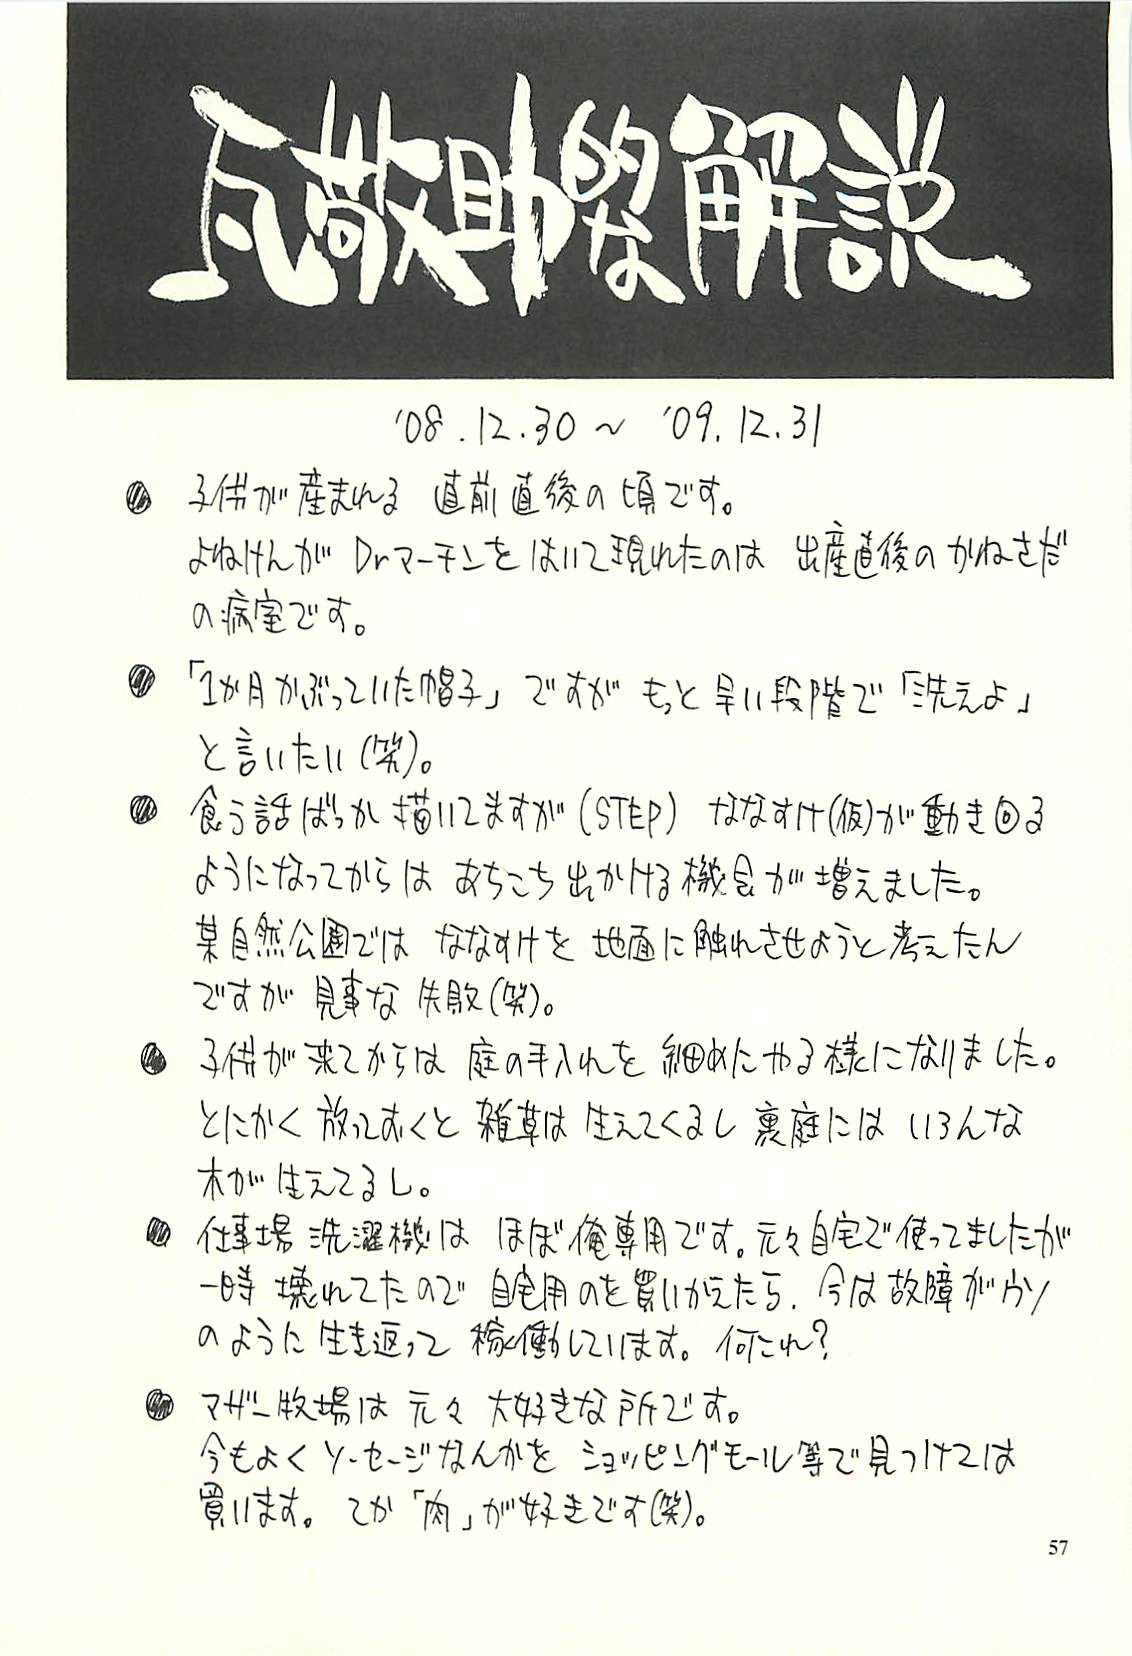 瓦敬助的な解説
'08.12.30～'09.12.31
● 子供が産まれる 直前直後の頃です。
よねけんが Drマーチンをはいて現れたのは 出産直後のかねさだ
の病室です。
● 「1か月かぶっていた帽子」ですが もっと早い段階で「洗えよ」
と言いたい(笑)。
● 食う話ばっか描いてますが(STEP) ななすけ(仮)が動き回る
ようになってからは あちこち出かける機会が増えました。
某自然公園では ななすけを 地面に触れさせようと考えたん
ですが 見事な失敗(笑)。
● 子供が来てからは 庭の手入れを 細めにやる様になりました。
とにかく 放っておくと 雑草は 生えてくるし 裏庭には いろんな
木が生えてるし。
● 仕事場 洗濯機は ほぼ俺専用です。元々自宅で使ってましたが
一時 壊れてたので 自宅用のを買いかえたら、今は故障がウソ
のように 生き返って 稼働しています。何これ?
● マザー牧場は 元々 大好きな所です。
今もよく ソーセージなんかを ショッピングモール等で見つけては
買います。てか「肉」が好きです(笑)。
57